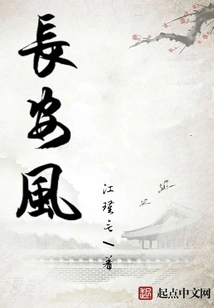 長安風
江璞言 著
起点中文网